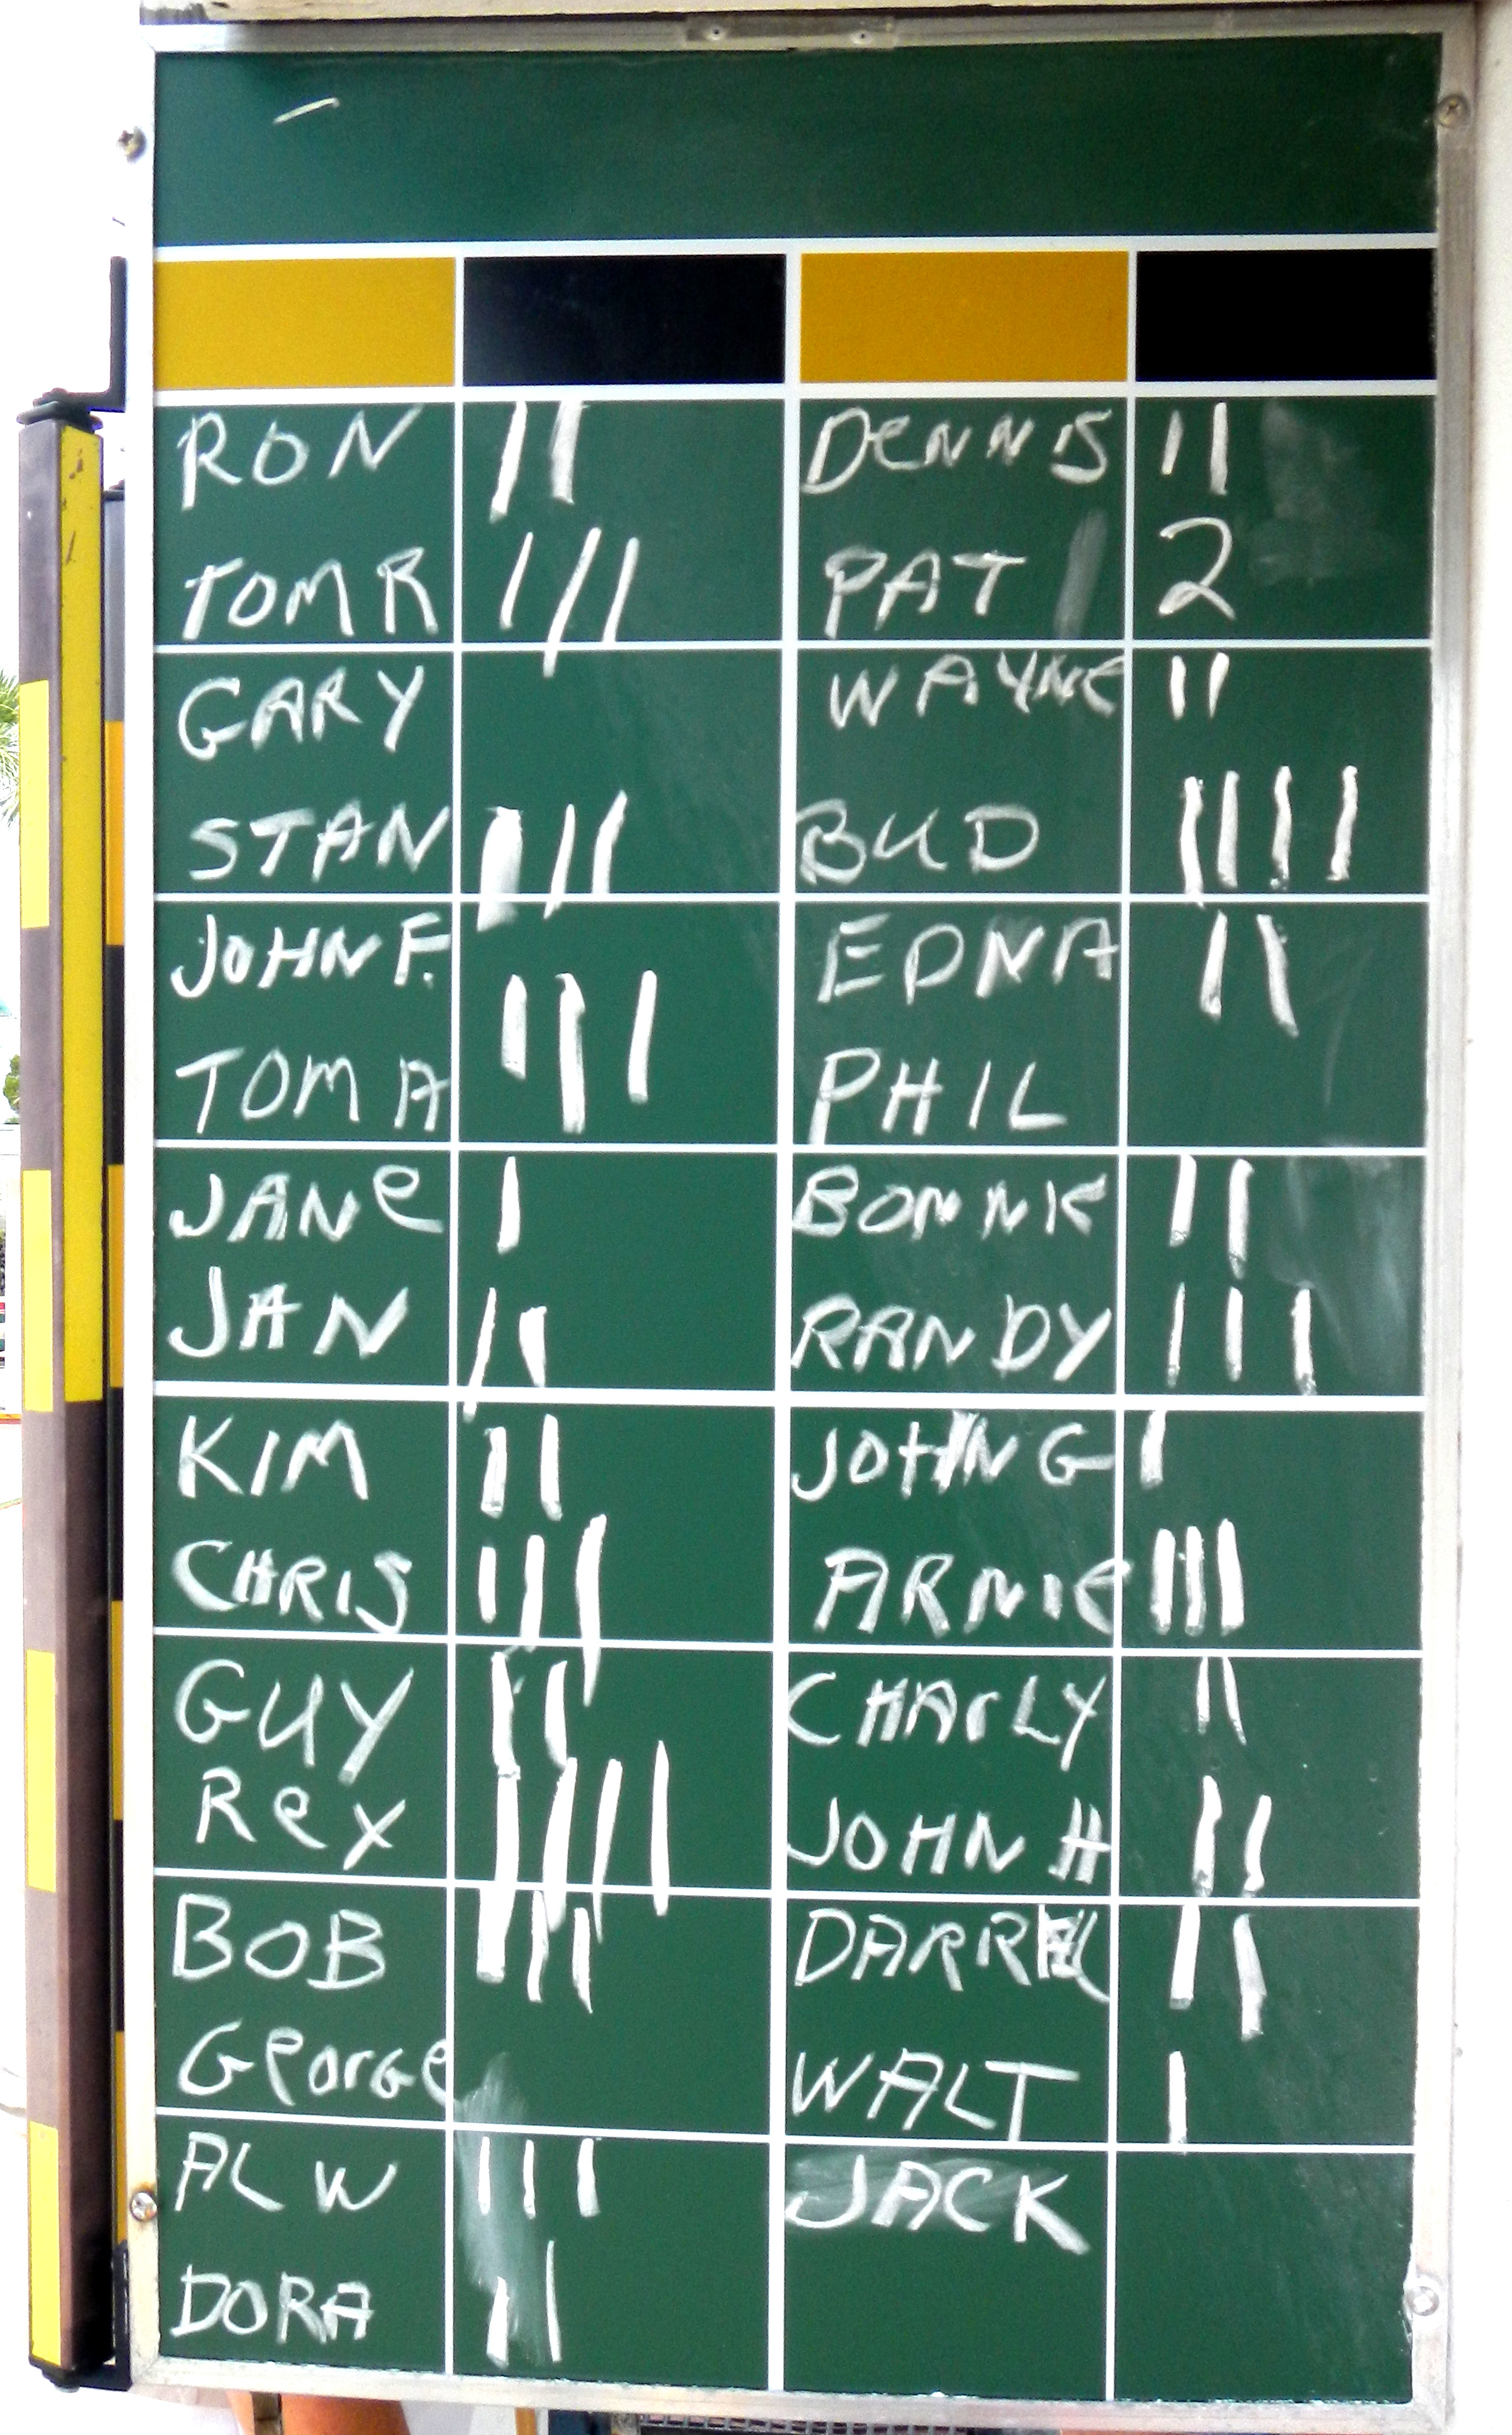 RON II DENNIS II
TOM R III PAT 2
GARY WAYNE II
STAN III BUD IIII
JOHN F. EDNA II
TOM A III PHIL
JANe I BONNIE II
JAN II RANDY III
KIM II JOHN G I
CHRIS III ARNIe III
GUY II CHArLY II
Rex IIII JOHN H II
BOB III DARREL II
GeorGe WALT I
AL W III JACK
DORA II